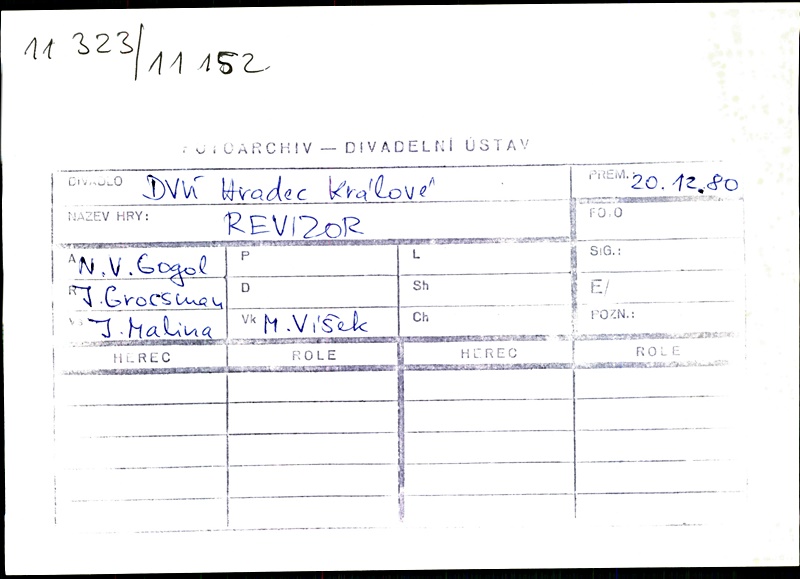 11 323/11 152
FOTOARCHIV — DIVADELNÍ ÚSTAV
DIVADLO DVÚ Hradec Králové PREM.: 20.12.80
NÁZEV HRY: REVIZOR FOTO
A N.V.Gogol P L SIG.:
R J.Grocsman D Sh E/
J.Malina Vk M.Víšek Ch POZN.:
HEREC ROLE HEREC ROLE